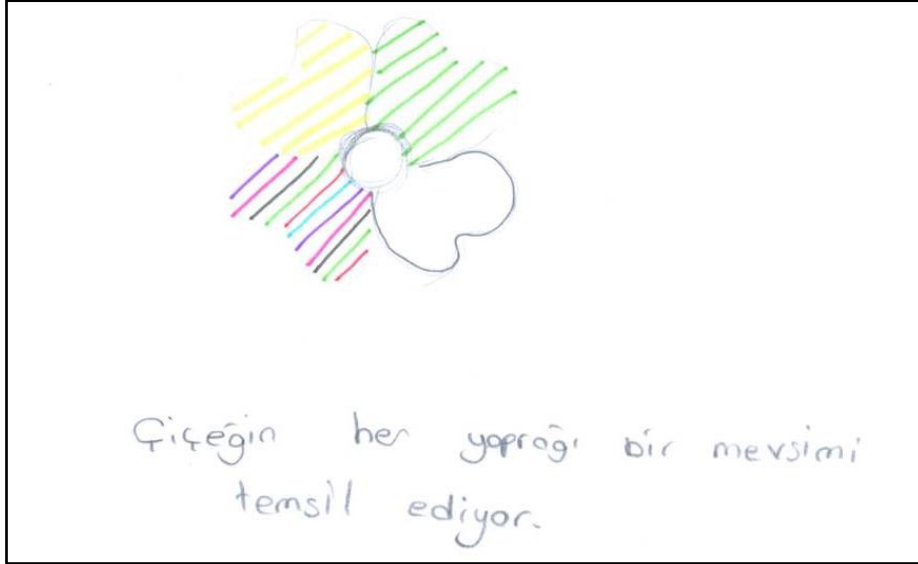 Çiçeğin her yaprağı bir mevsimi
temsil ediyor.